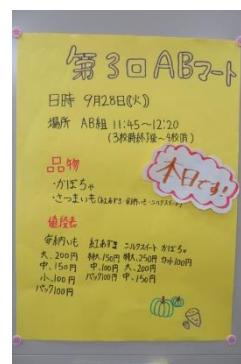 第3回ABマート
日時 9月28日(火)
場所 AB組 11:45~12:20
(3校時終了後~4校時)
本日です!
品物
・かぼちゃ
・さつまいも(紅あずま・安納いも・シルクスイート)
値段表
安納いも 紅あずま シルクスイート かぼちゃ
大、200円 特大、150円 特大、250円 カット100円
中、150円 中、100円 大、200円
小、100円 パック100円 中、150円
パック100円